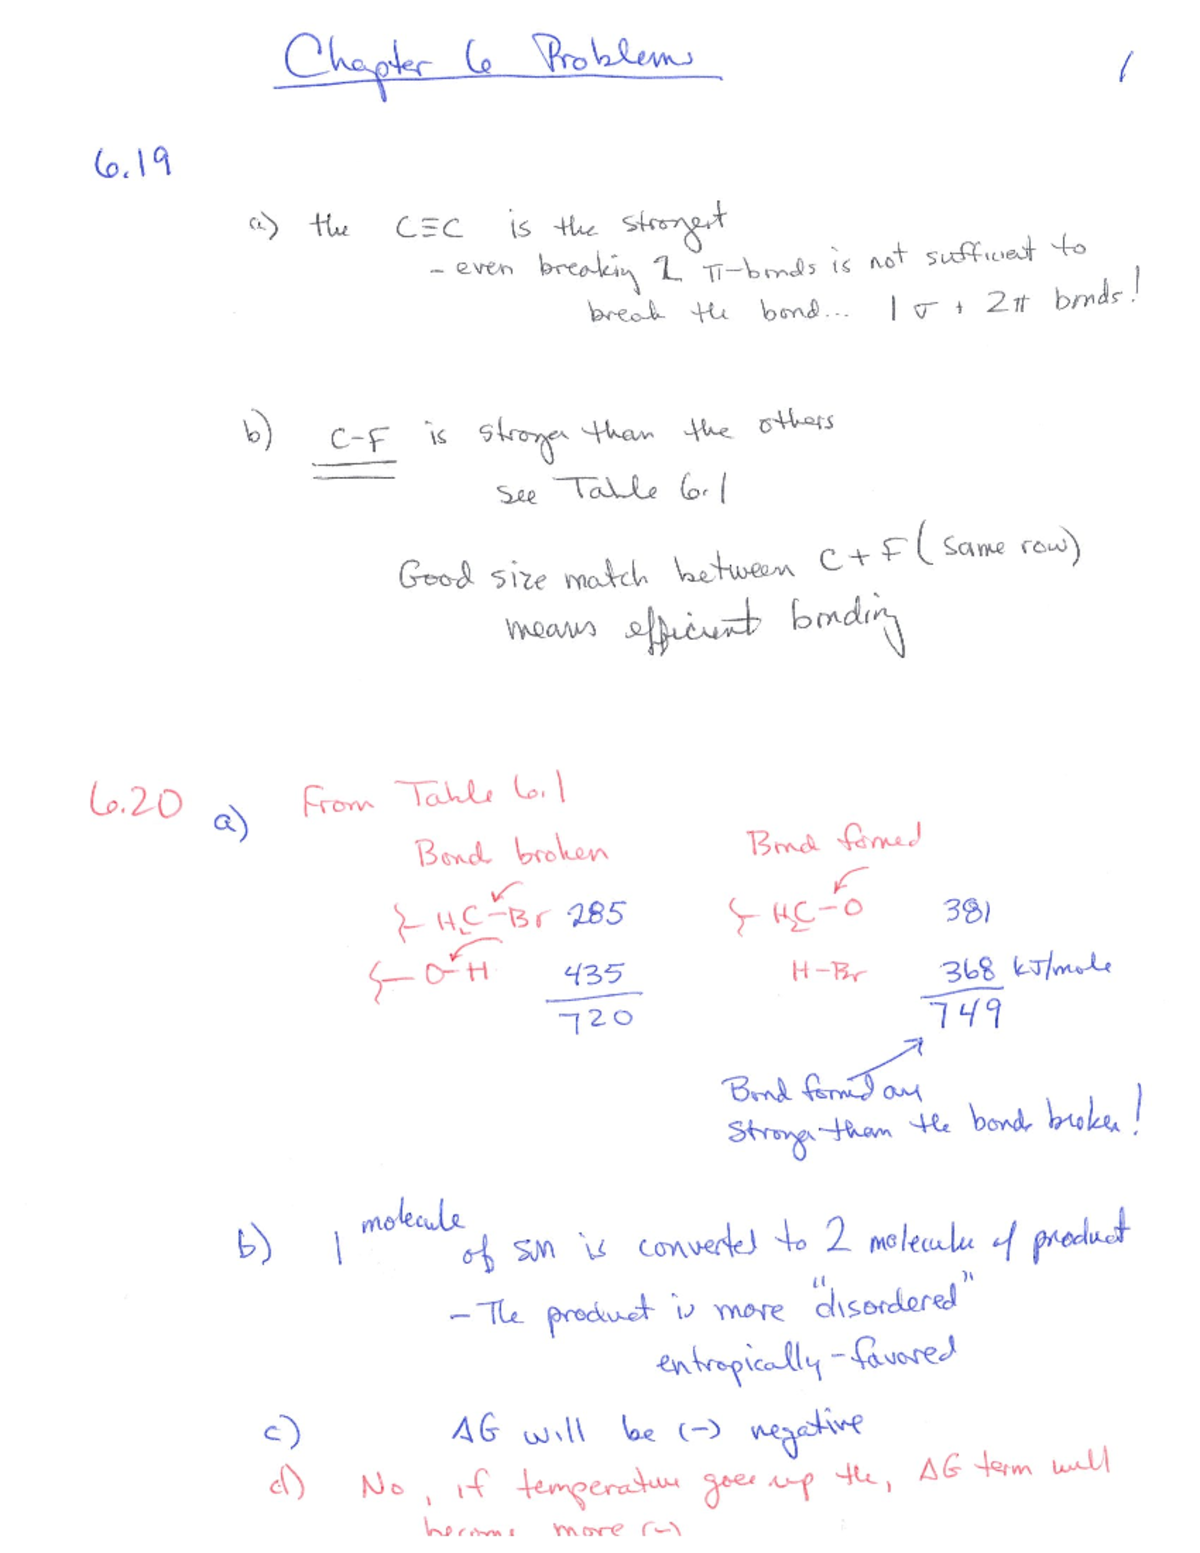 Chapter 6 Problems
1
6.19
a) the C≡C is the strongest
- even breaking 2 π-bonds is not sufficient to
break the bond... 1 σ + 2π bonds!
b) C-F is stronger than the others
see Table 6.1
Good size match between C + F (same row)
means efficient bonding
6.20 a) From Table 6.1
Bond broken Bond formed
H₂C-Br 285 H₂C-O 381
O-H 435 H-Br 368 kJ/mole
720 749
Bond formed are
stronger than the bonds broken!
b) 1 molecule of sm is converted to 2 molecules of product
- The product is more "disordered"
entropically-favored
c) ΔG will be (-) negative
d) No, if temperature goes up the, ΔG term will
become more (-)